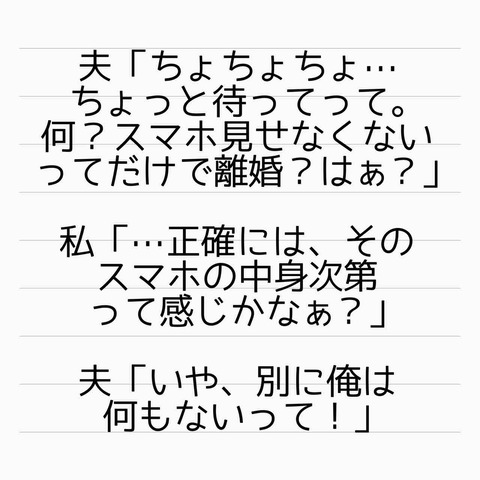 夫「ちょちょちょ…
ちょっと待ってって。
何？スマホ見せなくない
ってだけで離婚？はぁ？」
私「…正確には、その
スマホの中身次第
って感じかなぁ？」
夫「いや、別に俺は
何もないって！」